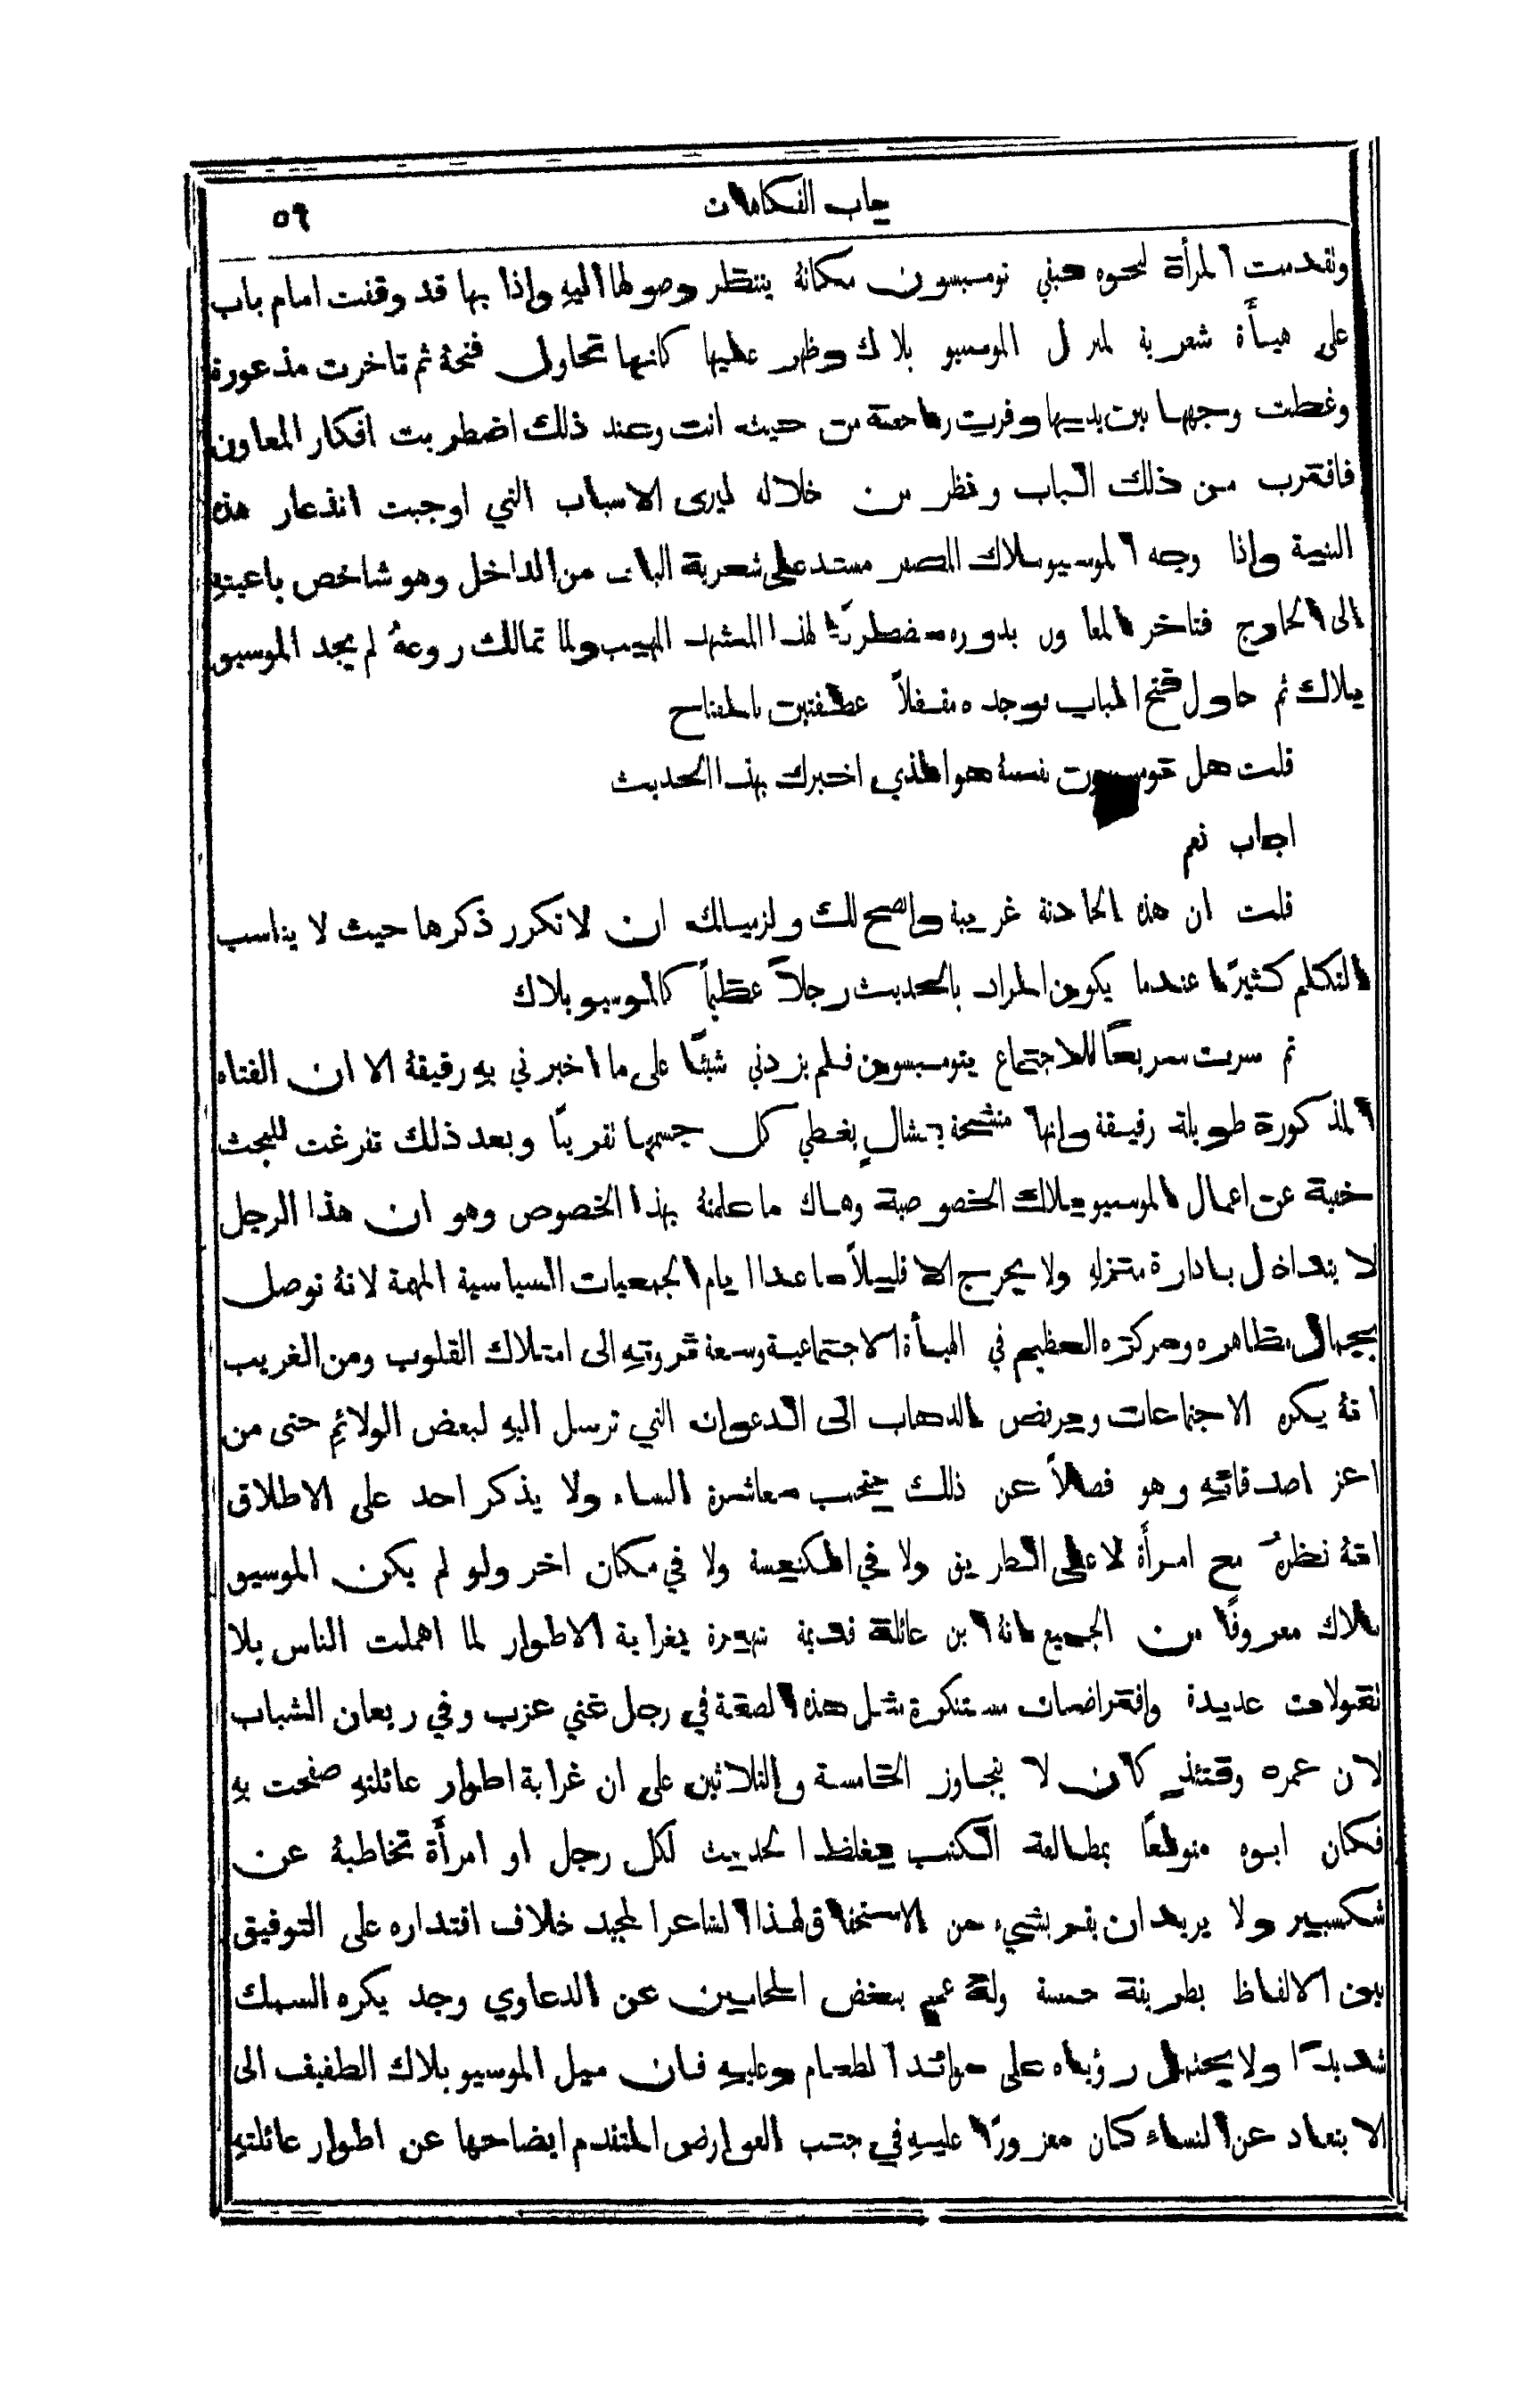 باب الفكاهات ٥٩
وتقدمت المرأة نحوه فبقي تومسسون مكانهُ ينتظر وصولها اليهِ واذا بها قد وقفت امام باب
على هيأة شعرية لمنزل الموسيو بلاك وظهر عليها كانها تحاول فتحهُ ثم تاخرت مذعورة
وغطت وجهها بين يديها وفرت راجعة من حيث اتت وعند ذلك اضطربت افكار المعاون
فاقترب من ذلك الباب ونظر من خلاله ليرى الاسباب التي اوجبت انذعار هذه
البنية واذا وجه الموسيو بلاك المصفر مستند على شعرية الباب من الداخل وهو شاخص باعينهِ
الى الخارج فتاخر المعاون بدوره مضطربًا لهذا المشهد المهيب ولما تمالك روعهُ لم يجد الموسيو
بلاك ثم حاول فتح الباب فوجده مقفلاً عطفتين بالمفتاح
قلت هل تومسسون نفسهُ هو الذي اخبرك بهذا الحديث
اجاب نعم
قلت ان هذه الحادثة غريبة وانصح لك ولزميلك ان لا تكرر ذكرها حيث لا يناسب
التكلم كثيرًا عندما يكون المراد بالحديث رجلاً عظيمًا كالموسيو بلاك
ثم سرت سريعًا للاجتماع بتومسسون فلم يزدني شيئًا على ما اخبرني بهِ رفيقهُ الا ان الفتاه
المذكورة طويلة رفيقة وانها متشحة بشالٍ يغطي كل جسمها تقريبًا وبعد ذلك تفرغت للبحث
خفية عن اعمال الموسيو بلاك الخصوصية وهاك ما علمتهُ بهذا الخصوص وهو ان هذا الرجل
لا يتداخل بادارة منزلهِ ولا يخرج الا قليلاً ما عدا ايام الجمعيات السياسية المهمة لانهُ توصل
بجمال مظاهره ومركزه العظيم في الهيأة الاجتماعية وسعة ثروتهِ الى امتلاك القلوب ومن الغريب
انهُ يكره الاجتماعات ويرفض الذهاب الى الدعوات التي ترسل اليهِ لبعض الولائم حتى من
اعز اصدقائهِ وهو فضلاً عن ذلك يتجنب معاشرة النساء ولا يذكر احد على الاطلاق
انهُ نظرهُ مع امرأة لا على الطريق ولا في الكنيسة ولا في مكان اخر ولو لم يكن الموسيو
بلاك معروفًا من الجميع بانهُ ابن عائلة قديمة شهيرة بغرابة الاطوار لما اهملت الناس بلا
تقولات عديدة وافتراضات مستنكرة مثل هذه الصفة في رجل غني عزب وفي ريعان الشباب
لان عمره وقتئذٍ كان لا يتجاوز الخامسة والثلاثين على ان غرابة اطوار عائلتهِ صفحت بهِ
فكان ابوه متولعًا بمطالعة الكتب يغلظ الحديث لكل رجل او امرأة تخاطبهُ عن
شكسبير ولا يريد ان يقر بشيء من الاستحقاق لهذا الشاعر المجيد خلاف اقتداره على التوفيق
بين الالفاظ بطريقة حسنة ولهُ عم يبغض المحامين عن الدعاوي وجد يكره السمك
شديدًا ولا يحتمل رؤياه على موائد الطعام وعليهِ فان ميل الموسيو بلاك الطفيف الى
الابتعاد عن النساء كان معزورًا عليهِ في جنب العوارض المتقدم ايضاحها عن اطوار عائلتهِ